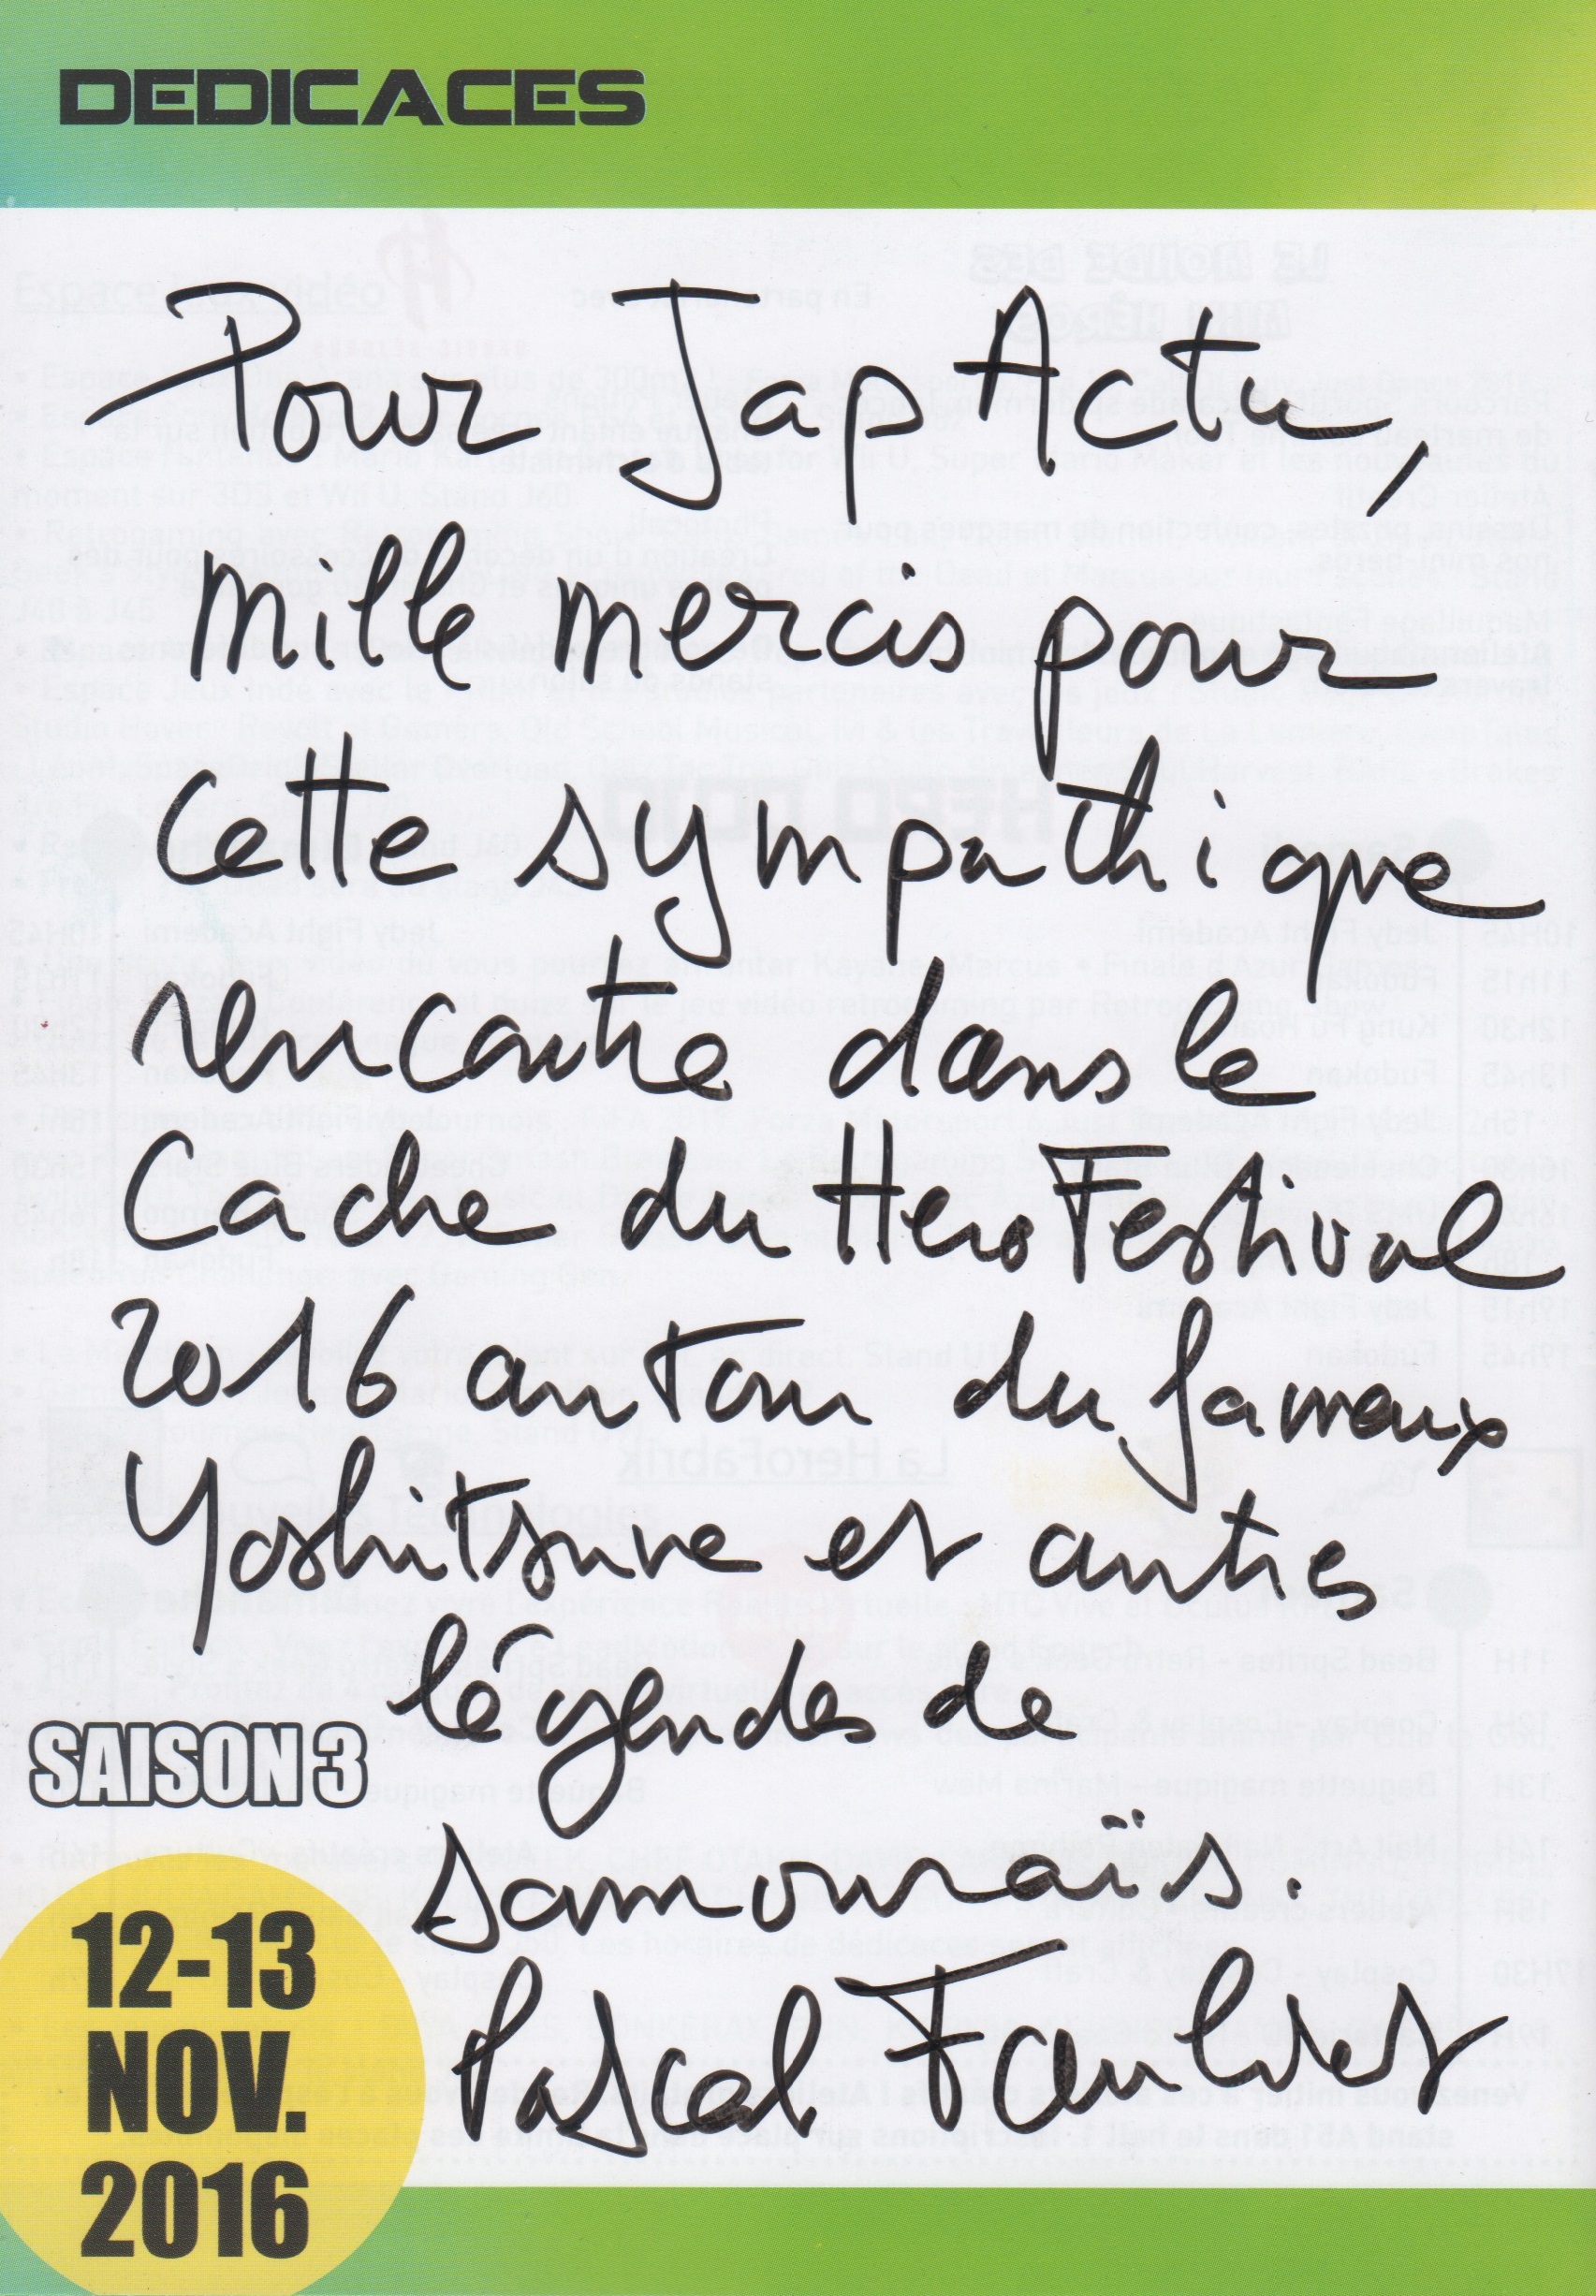 DEDICACES
Pour JapActu,
mille mercis pour
cette sympathique
rencontre dans le
cache du HeroFestival
2016 autour du fameux
Yoshitsune et autres
légendes de
samouraïs.
Pascal Fauliot
SAISON 3
12-13
NOV.
2016